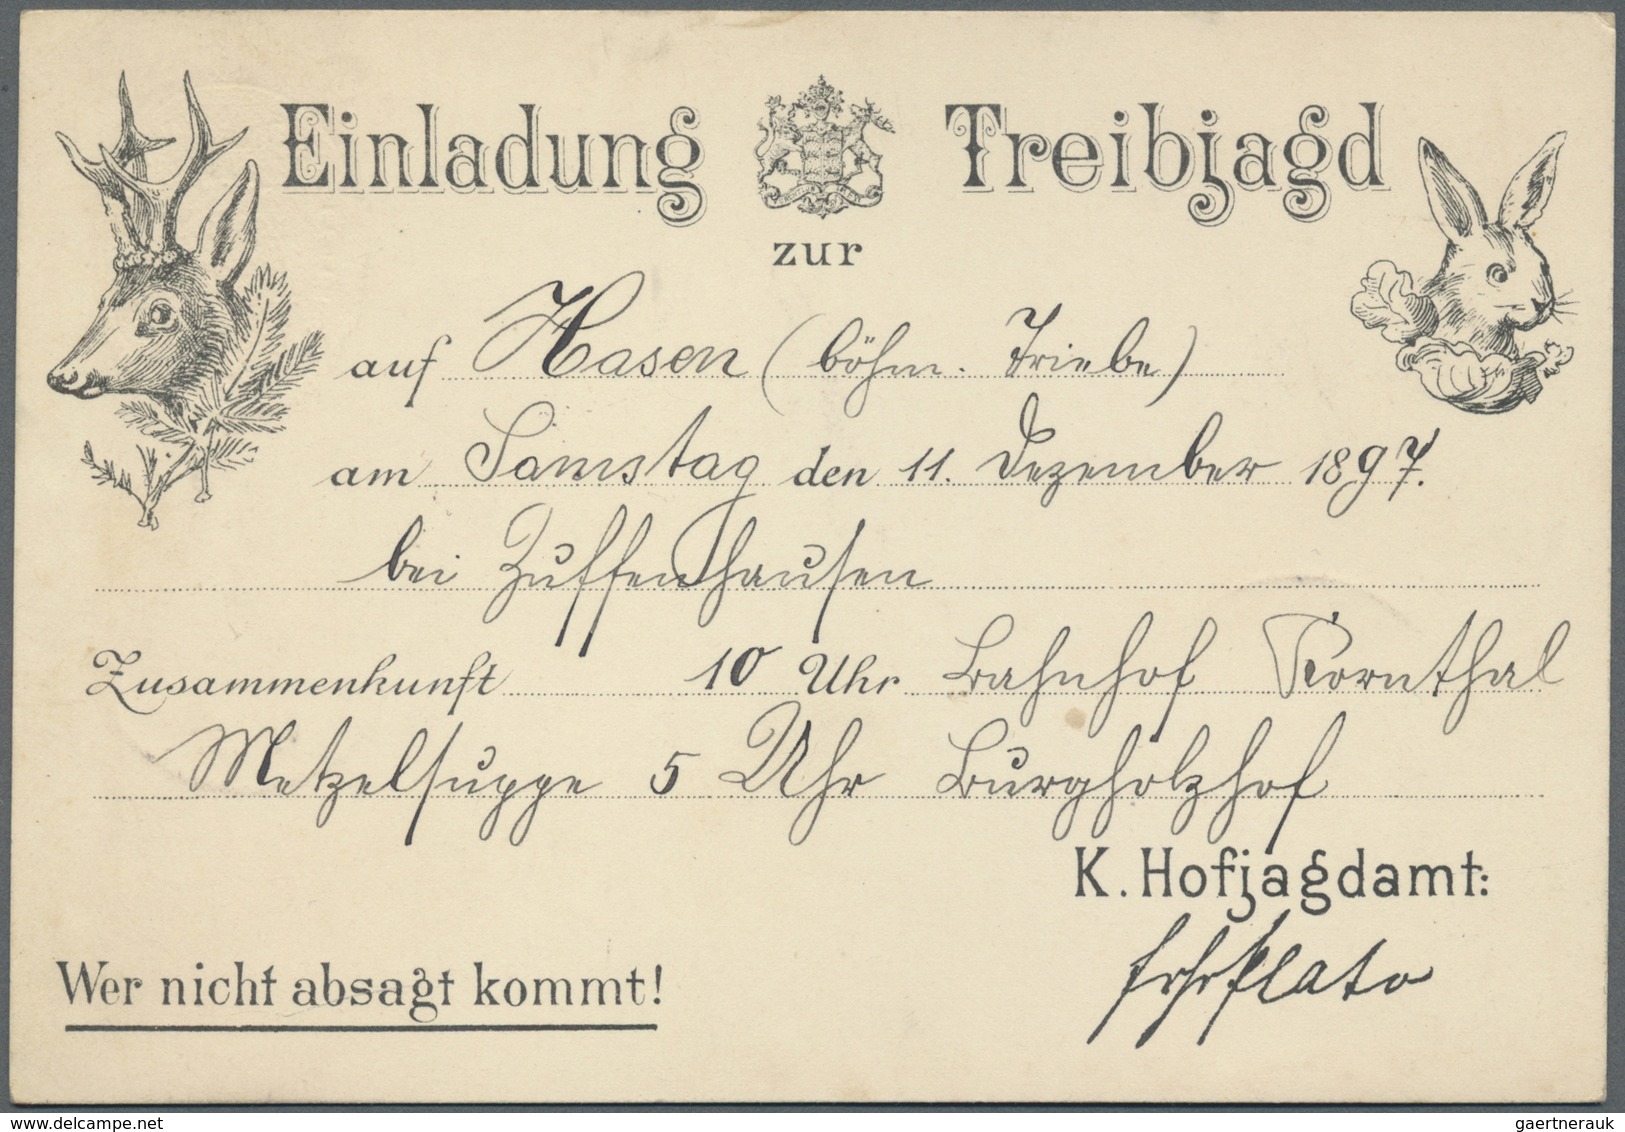 Einladung zur Treibjagd
auf Hasen (böhm. Triebe)
am Samstag den 11. Dezember 1897.
bei Zuffenhausen
Zusammenkunft 10 Uhr Bahnhof Kornthal
Metzelsuppe 5 Uhr Burgholzhof
K. Hofjagdamt:
Plato
Wer nicht absagt kommt!
gaertnerauk